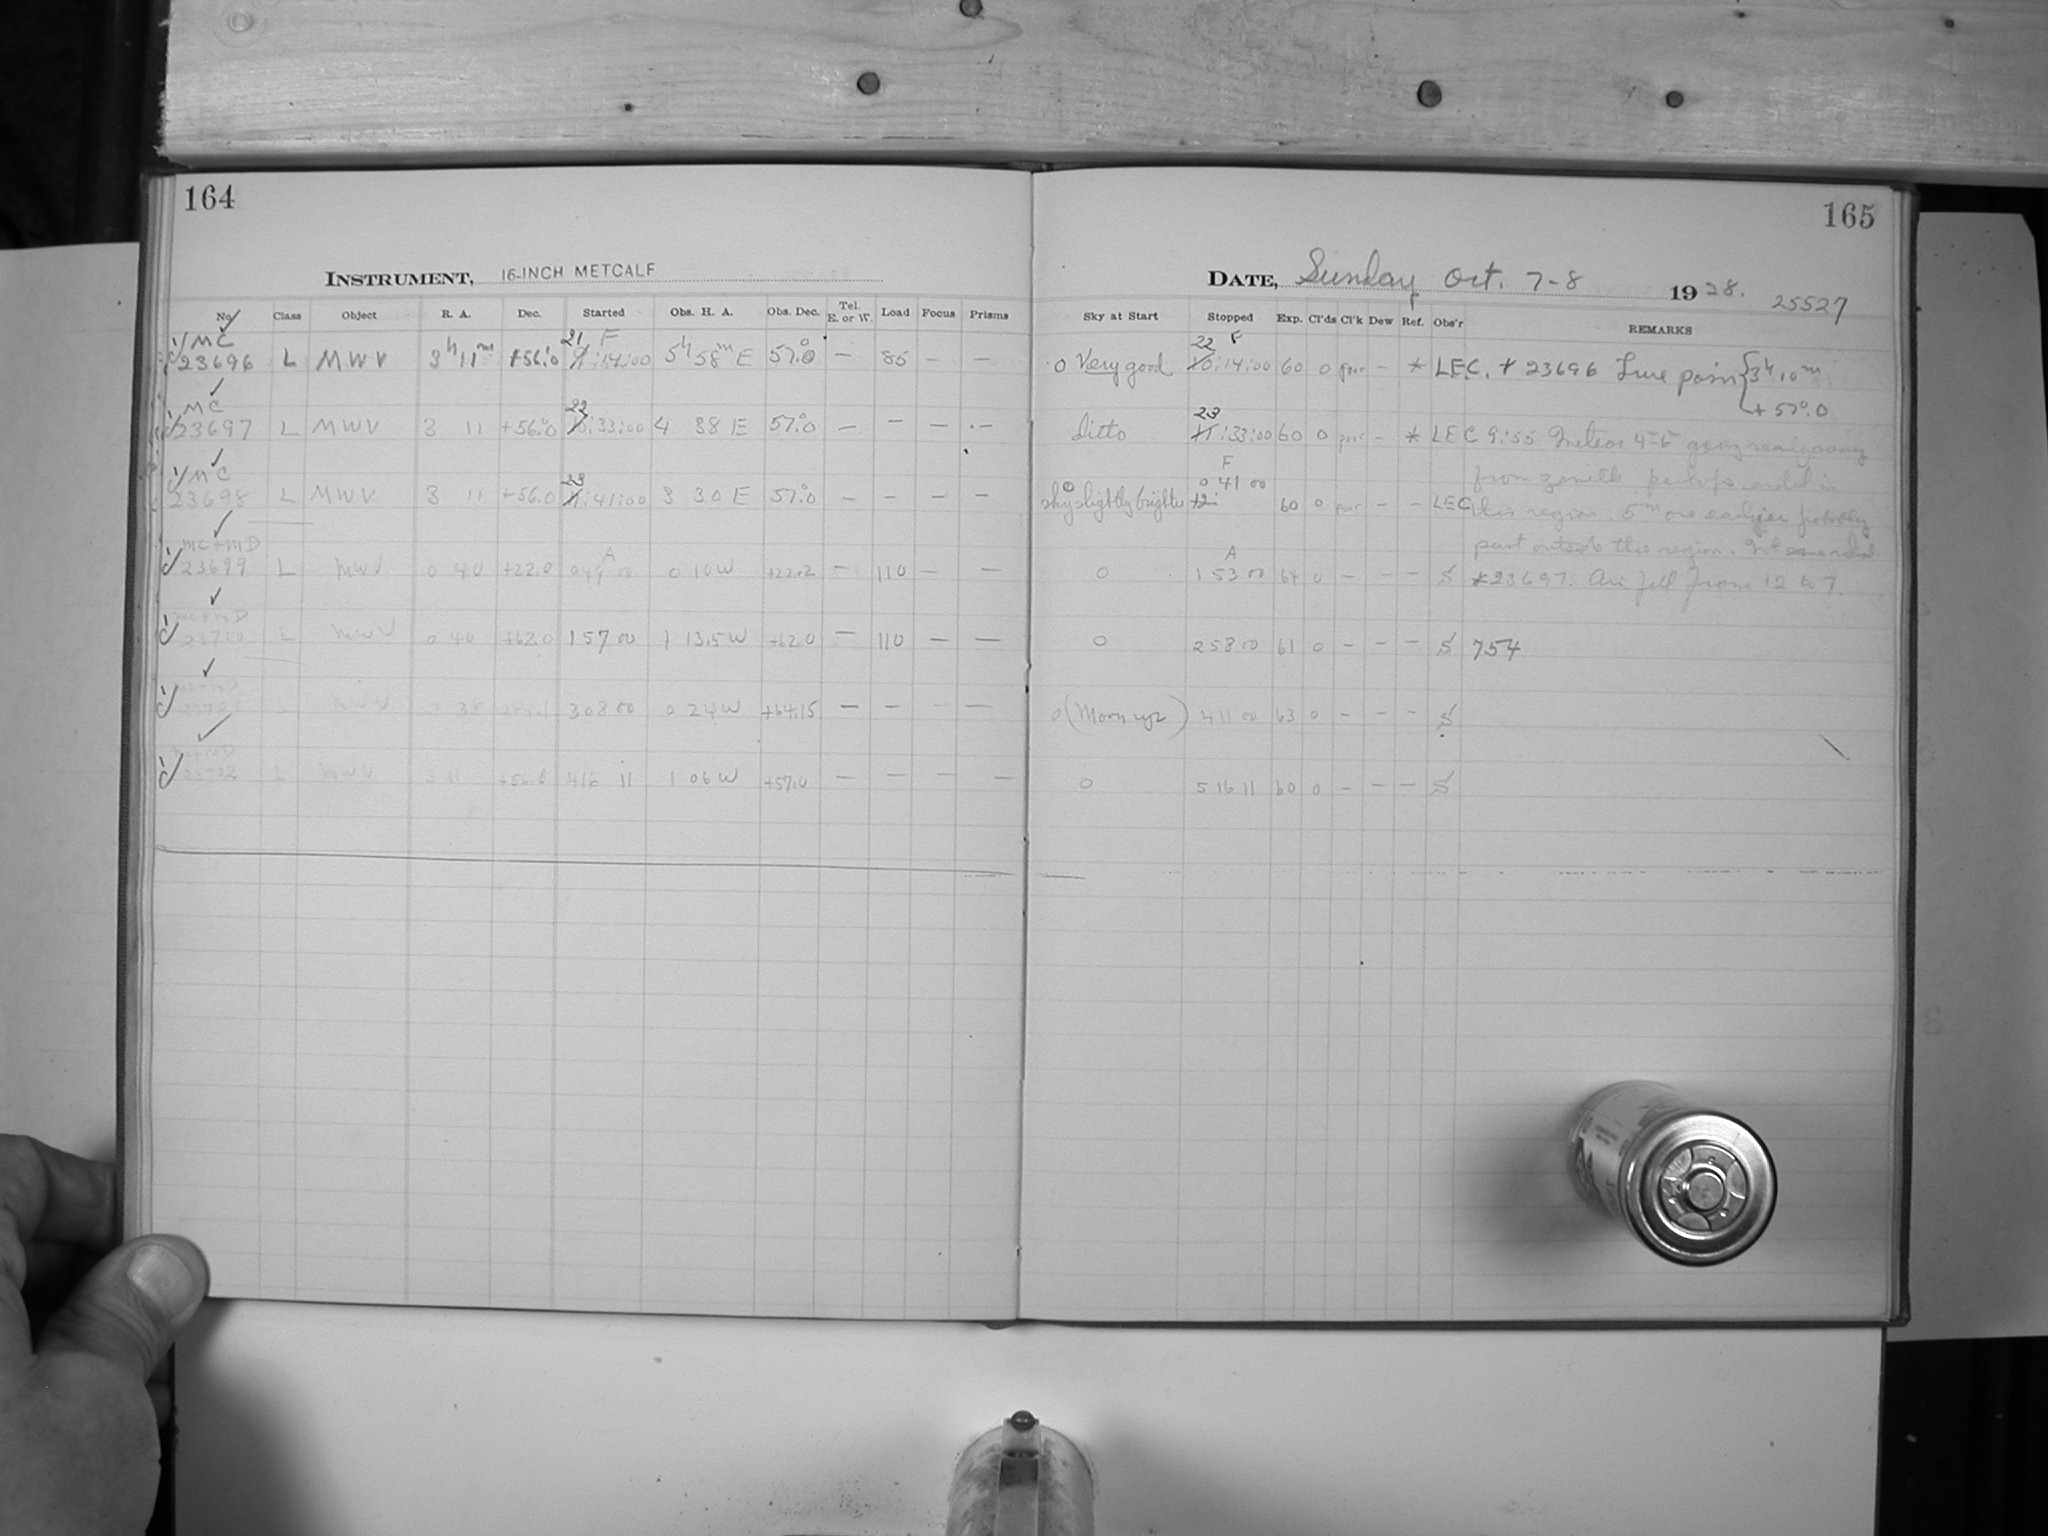 164
INSTRUMENT, 16-INCH METCALF
No Class Object R. A. Dec. Started Obs. H. A. Obs. Dec. Tel. E. or W. Load Focus Prisms
MC 21 F
23696 L MWV 3h 11m +56.0 :14:00 5h 58m E 57.0 — 85 — —
MC 22
23697 L MWV 3 11 +56.0 :33:00 4 38 E 57.0 — — — —
MC 23
23698 L MWV 3 11 +56.0 :41:00 3 30 E 57.0 — — — —
MC+MD A
23699 L MWV 0 40 +22.0 0 49 00 0 10 W +22.2 — 110 — —
MC+MD
23700 L MWV 0 40 +62.0 1 57 00 1 13.5 W +62.0 — 110 — —
MWV 3 08 00 0 24 W +64.15 — — — —
23702 L MWV 3 11 +56.0 4 16 11 1 06 W +57.0 — — — —
165
DATE, Sunday Oct. 7-8 1928. 25527
Sky at Start Stopped Exp. Cl'ds Cl'k Dew Ref. Obs'r REMARKS
22 F
0 Very good :14:00 60 0 poor — * LEC. + 23696 True posn 3h 10m
+57°.0
23
Ditto :33:00 60 0 poor — * LEC 9:55 Meteor going away
F
0 41 00 from zenith perhaps ended in
0
sky slightly brighter 60 0 poor — — LEC this region. 5m one earlier probably
A
just outside this region.
0 1 53 00 64 0 — — — S *23697. fell from 12 to 7.
0 2 58 00 61 0 — — — S 754
0 (Moon up) 4 11 00 63 0 — — — S
0 5 16 11 60 0 — — — S